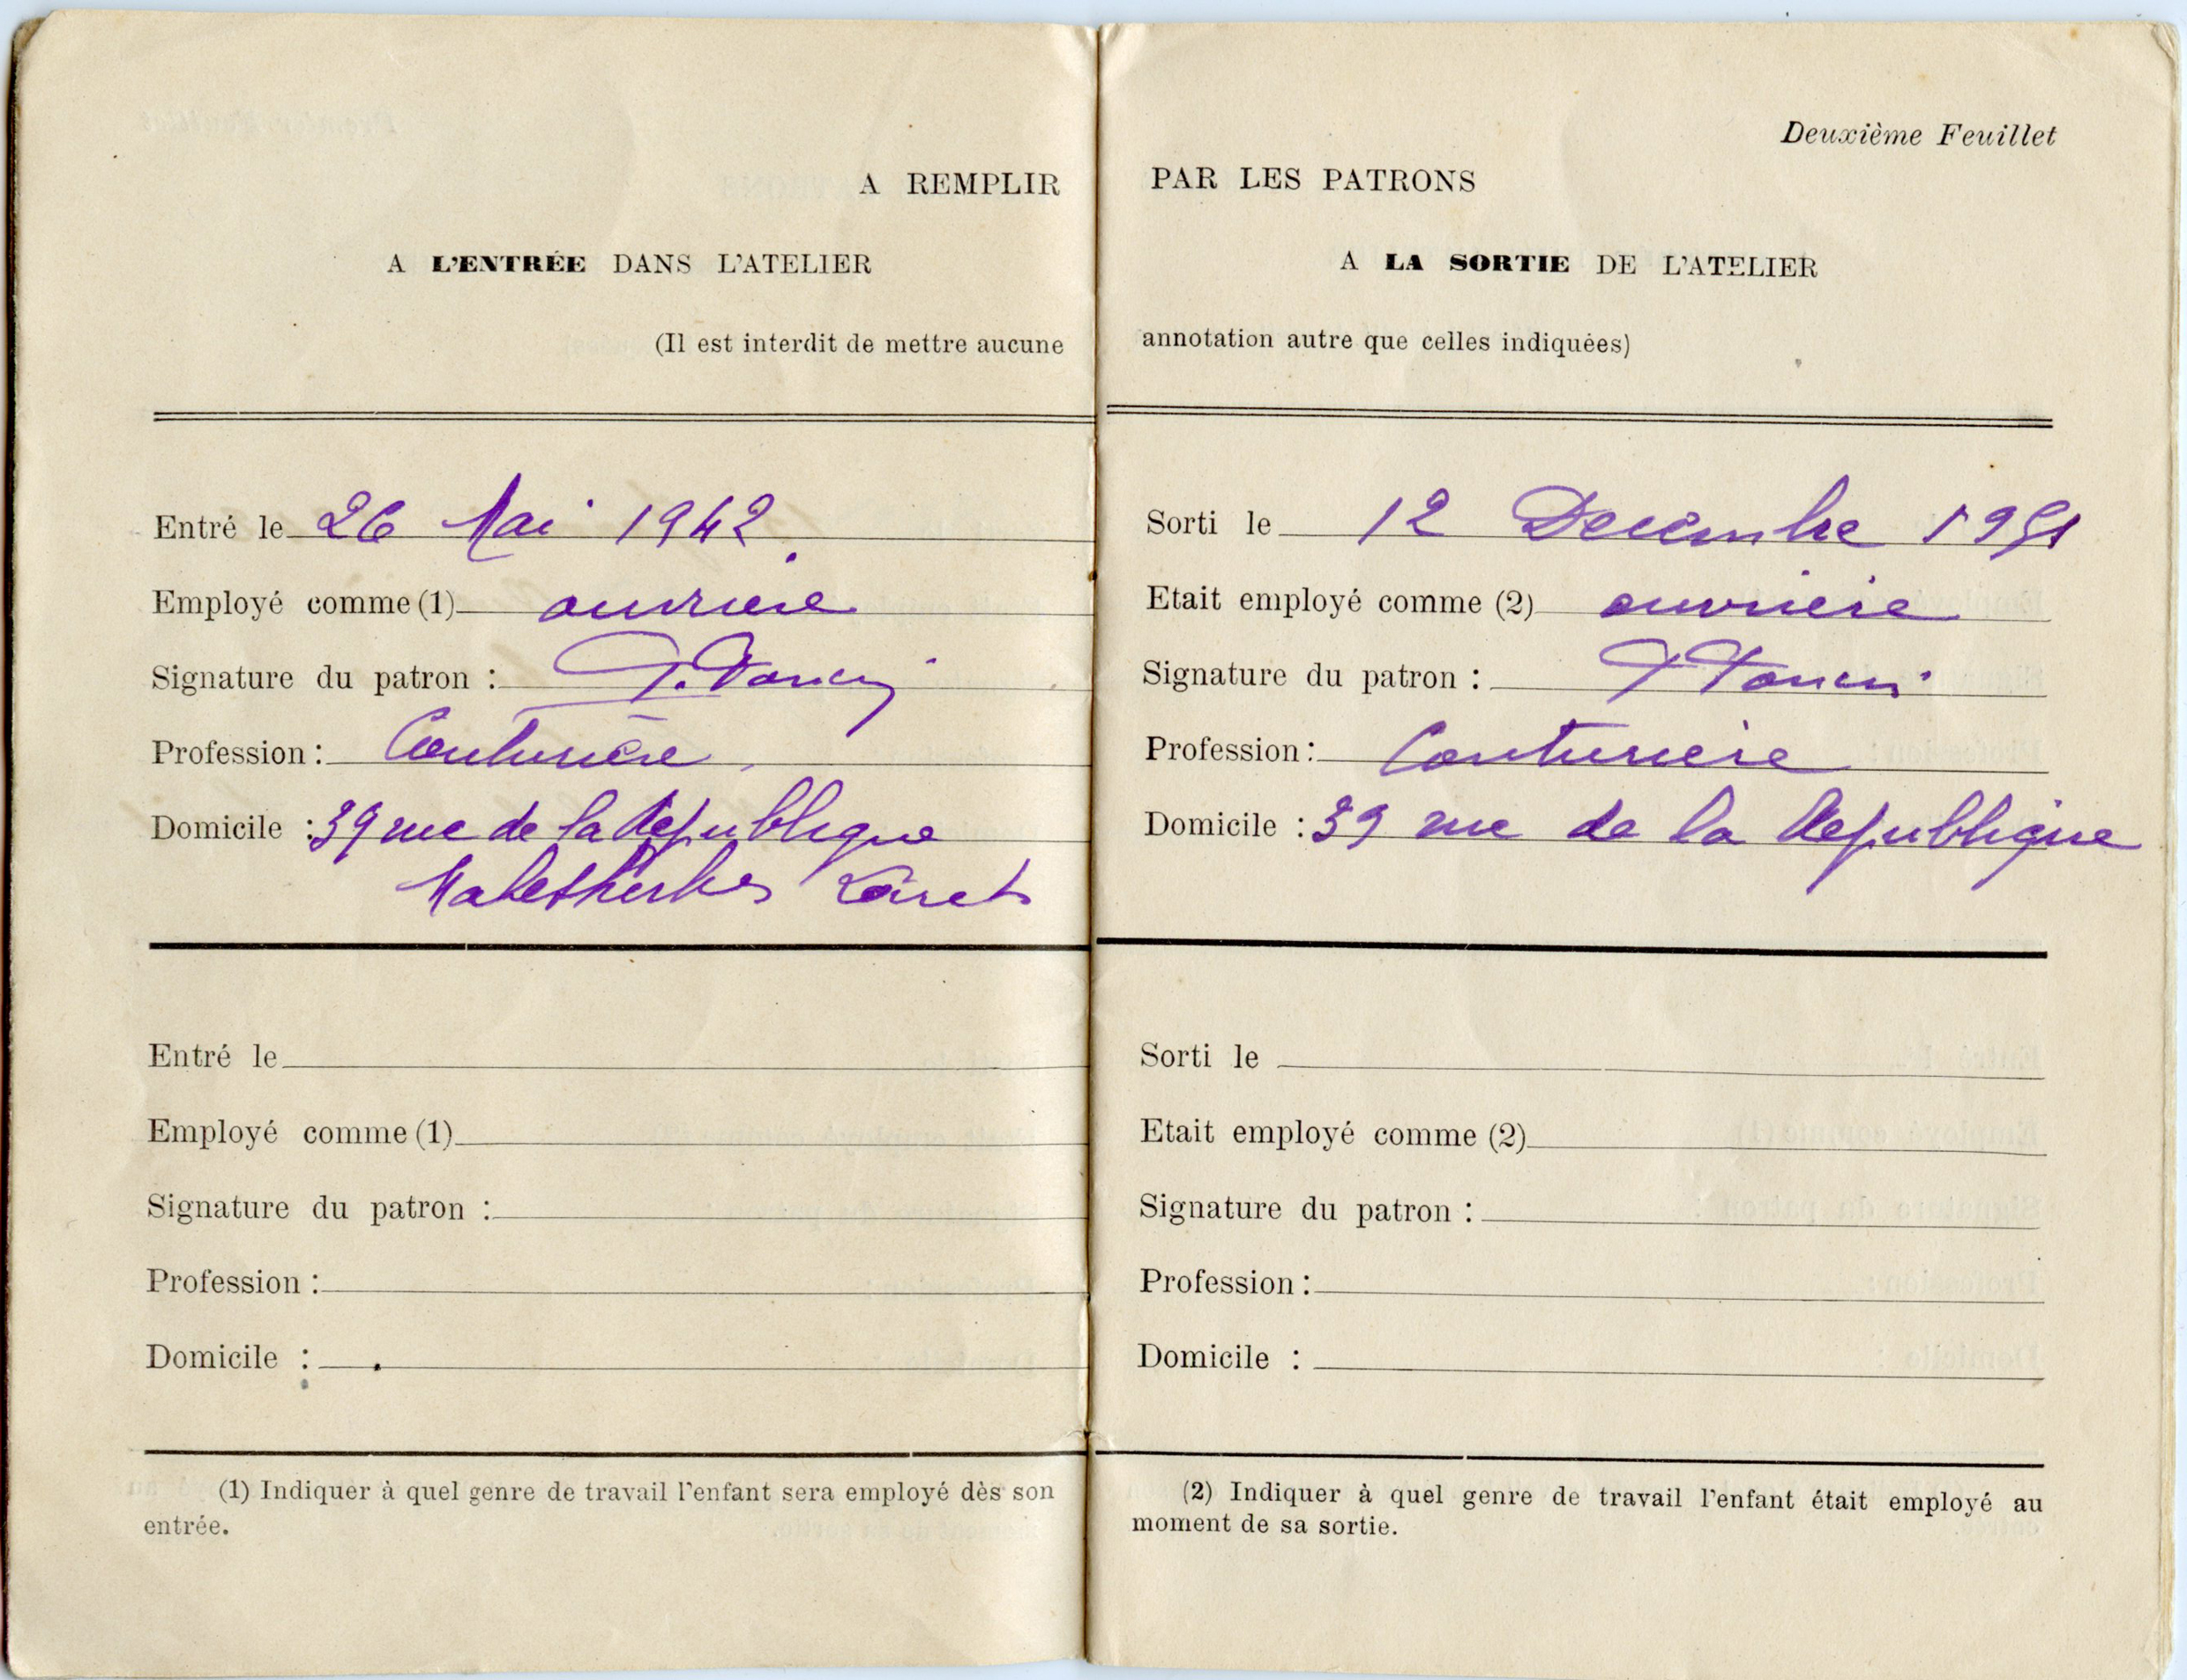 Deuxième Feuillet
A REMPLIR PAR LES PATRONS
A L'ENTRÉE DANS L'ATELIER
A LA SORTIE DE L'ATELIER
(Il est interdit de mettre aucune annotation autre que celles indiquées)
Entré le 26 Mai 1942
Employé comme (1) ouvrière
Signature du patron :
Profession : Couturière
Domicile : 39 rue de la Republique
Malesherbes Loiret
Sorti le 12 Decembre 1951
Etait employé comme (2) ouvrière
Signature du patron :
Profession : Couturière
Domicile : 39 rue de la Republique
Entré le
Employé comme (1)
Signature du patron :
Profession :
Domicile :
Sorti le
Etait employé comme (2)
Signature du patron :
Profession :
Domicile :
(1) Indiquer à quel genre de travail l'enfant sera employé dès son
entrée.
(2) Indiquer à quel genre de travail l'enfant était employé au
moment de sa sortie.